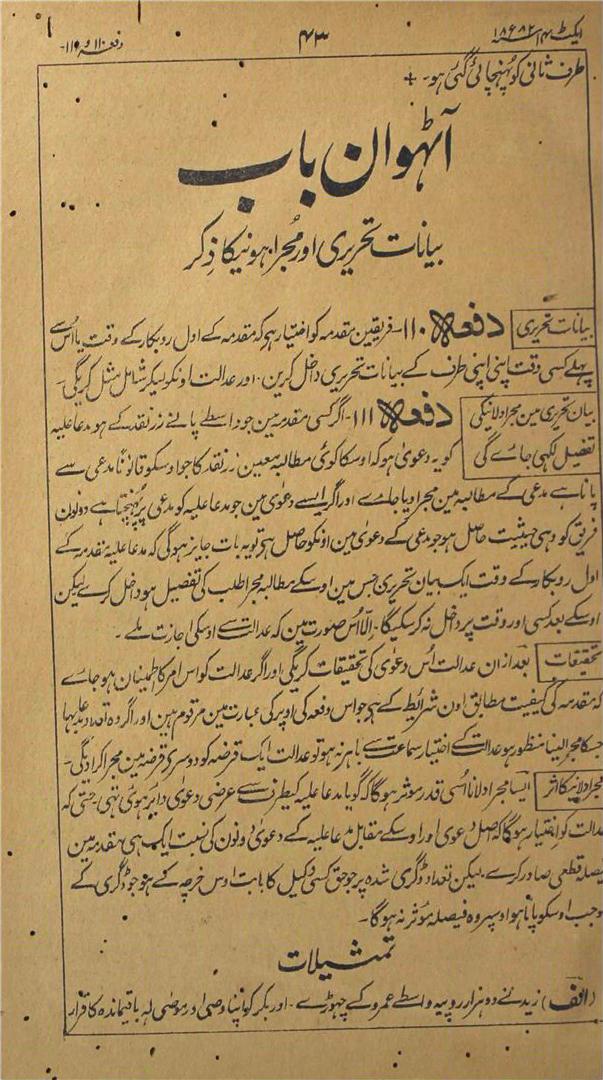 ایکٹ ۱۴ سنہ ۱۸۸۲
۴۳
دفعہ ۱۱۰ و ۱۱۱-
طرف ثانی کو پہنچائی گئی ہو۔ +
آٹھوان باب
بیانات تحریری اور مُجرا ہونیکا ذِکر
بیانات تحریری دفعہ ۱۱۰- فریقین مقدمہ کو اختیار ہی کہ مقدمہ کے اول روبکار کے وقت یا اُس سے
پہلے کسی وقت اپنی اپنی طرف کے بیانات تحریری داخل کرین۔ اور عدالت اونکو لیکر شامل مثل کریگی۔
بیان تحریری مین مجرا دلانیکی دفعہ ۱۱۱- اگر کسی مقدمہ مین جو واسطے پانے زر نقد کے ہو مدعا علیہ
تفصیل لکھی جاے گی کو یہ دعویٰ ہو کہ اوسکا کوئی مطالبہ معین زر نقد کا جو اوسکو قانوناً مدعی سے
پانا ہے مدعی کے مطالبہ مین مجرا دیا جاے اور اگر ایسے دعویٰ مین جو مدعا علیہ کو مدعی پر پہنچتا ہے دونون
فریق کو وہی حیثیت حاصل ہو جو مدعی کے دعویٰ مین اونکو حاصل ہی تو یہ بات جایز ہوگی کہ مدعا علیہ مقدمہ کے
اول روبکار کے وقت ایک بیان تحریری جس مین اوسکے مطالبہ مجرا طلب کی تفصیل ہو داخل کرے لیکن
اوسکے بعد کسی اور وقت پر داخل نہ کر سکیگا۔ اِلّا اُس صورت مین کہ عدالت سے اوسکی اجازت ملے۔
تحقیقات بعد ازان عدالت اُس دعویٰ کی تحقیقات کریگی اور اگر عدالت کو اس امر کا اطمینان ہو جاے
کہ مقدمہ کی کیفیت مطابق اون شرایط کے ہی جو اس دفعہ کی اوپر کی عبارت مین مرقوم ہین اور اگر وہ تعداد
جسکا مجرا لینا منظور ہو عدالت کے اختیار سماعت سے باہر نہ ہو تو عدالت ایک قرضہ کو دوسری قرضہ مین مجرا کرا دیگی۔
مجرا دلانیکا اثر ایسا مجرا دلانا اُسی قدر موثر ہوگا کہ گویا مدعا علیہ کیطرف سے عرضی دعویٰ دایر ہوئی تہی۔ حتی کہ
عدالت کو اختیار ہوگا کہ اصل دعویٰ اور اوسکے مقابل مدعا علیہ کے دعویٰ دونون کی نسبت ایک ہی مقدمہ مین
فیصلہ قطعی صادر کرے۔ لیکن تعداد ڈگری شدہ پر جو حق کسی وکیل کا بابت اوس خرچہ کے ہو جو ڈگری کے
بموجب اوسکو پانا ہو اوسپر وہ فیصلہ مؤثر نہ ہوگا۔
تمثیلات
(الف) زید نے دو ہزار روپیہ واسطے عمرو کے چھوڑے۔ اور بکر کو اپنا وصی اور موصی لہ باقیماندہ کا قرار